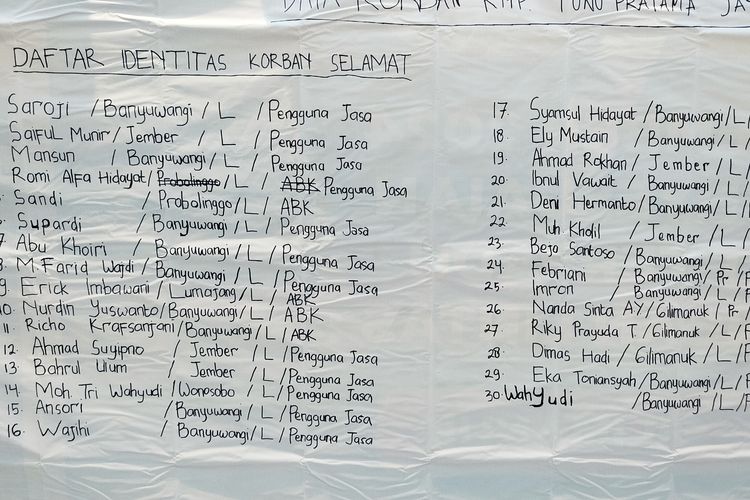 DATA KORBAN KMP. TUNU PRATAMA JA
DAFTAR IDENTITAS KORBAN SELAMAT
Saroji / Banyuwangi / L / Pengguna Jasa
Saiful Munir / Jember / L / Pengguna Jasa
Mansun / Banyuwangi / L / Pengguna Jasa
Romi Alfa Hidayat / Probolinggo / L / ABK Pengguna Jasa
Sandi / Probolinggo / L / ABK
Supardi / Banyuwangi / L / Pengguna Jasa
7 Abu Khoiri / Banyuwangi / L / Pengguna Jasa
8. M. Farid Wajdi / Banyuwangi / L / Pengguna Jasa
9 Erick Imbawani / Lumajang / L / ABK
10. Nurdin Yuswanto / Banyuwangi / L / ABK
11. Richo Krafsanjani / Banyuwangi / L / ABK
12. Ahmad Suyipno / Jember / L / Pengguna Jasa
13. Bahrul Ulum / Jember / L / Pengguna Jasa
14. Moh. Tri Wahyudi / Wonosobo / L / Pengguna Jasa
15. Ansori / Banyuwangi / L / Pengguna Jasa
16. Wajihi / Banyuwangi / L / Pengguna Jasa
17. Syamsul Hidayat / Banyuwangi / L /
18. Ely Mustain / Banyuwangi / L /
19. Ahmad Rokhan / Jember / L /
20. Ibnul Vawait / Banyuwangi / L /
21. Deni Hermanto / Banyuwangi / L /
22. Muh. Kholil / Jember / L /
23. Bejo Santoso / Banyuwangi / L /
24. Febriani / Banyuwangi / Pr /
25. Imron / Banyuwangi / L /
26. Nanda Sinta AY / Gilimanuk / Pr
27. Riky Prayuda T. / Gilimanuk / L /
28 Dimas Hadi / Gilimanuk / L /
29. Eka Toniansyah / Banyuwangi / L /
30. Wahyudi / Banyuwangi / L /